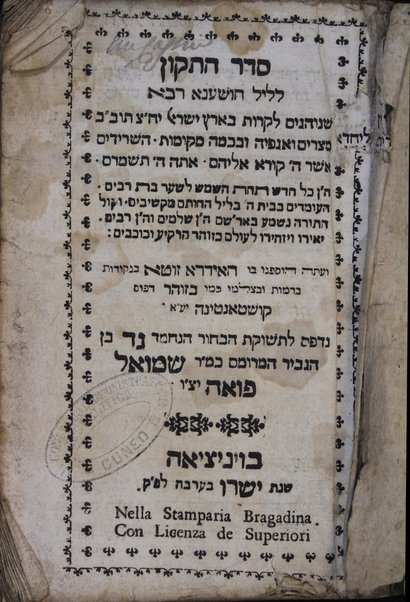 סדר התקון
לליל הושענא רבא
שנוהגים לקרות בארץ ישראל יחצ תובב
מצרים ואגפיה ובכמה מקומות השרידים
אשר ה' קורא אליהם אתה ה' תשמרם
הן כל חדש ותחת השמש לשער בת רבים
העומדים בבית ה' בליל החותם מקשיבים וקול
התורה נשמע בארשם הן שלמים והן רבים
יאירו ויזהירו לעולם כזוהר הרקיע וככוכבים:
ועתה הוספנו בו האידרא זוטא בנקודות
כמו בזוהר דפוס
קושטאנטינה יע"א
נדפס לתשוקת הבחור הנחמד גד בן
הגביר המרומם כמ"ר שמואל
פואה יצ"ו
בויניציאה
שנת ישרו בערבה לפ"ק.
Nella Stamparia Bragadina.
Con Licenza de Superiori
CUNEO